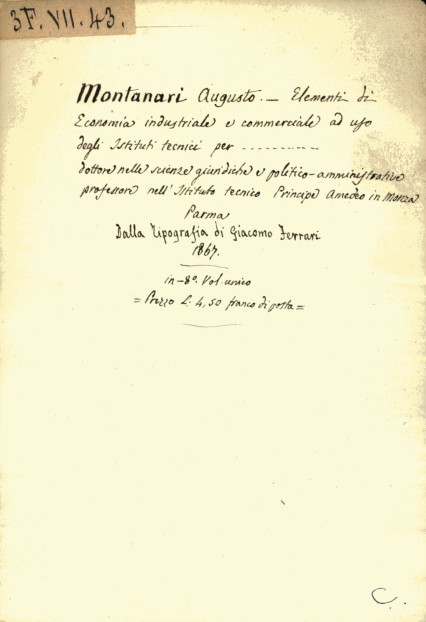 3F. VII. 43.
Montanari Augusto. — Elementi di
Economia industriale e commerciale ad uso
degli Istituti tecnici per ----------
dottore nelle scienze giuridiche e politico-amministrative
professore nell'Istituto tecnico Principe Amedeo in Monza
Parma
Dalla Tipografia di Giacomo Ferrari
1867.
in-8º. Vol. unico
= Prezzo L. 4,50 franco di posta =
C.